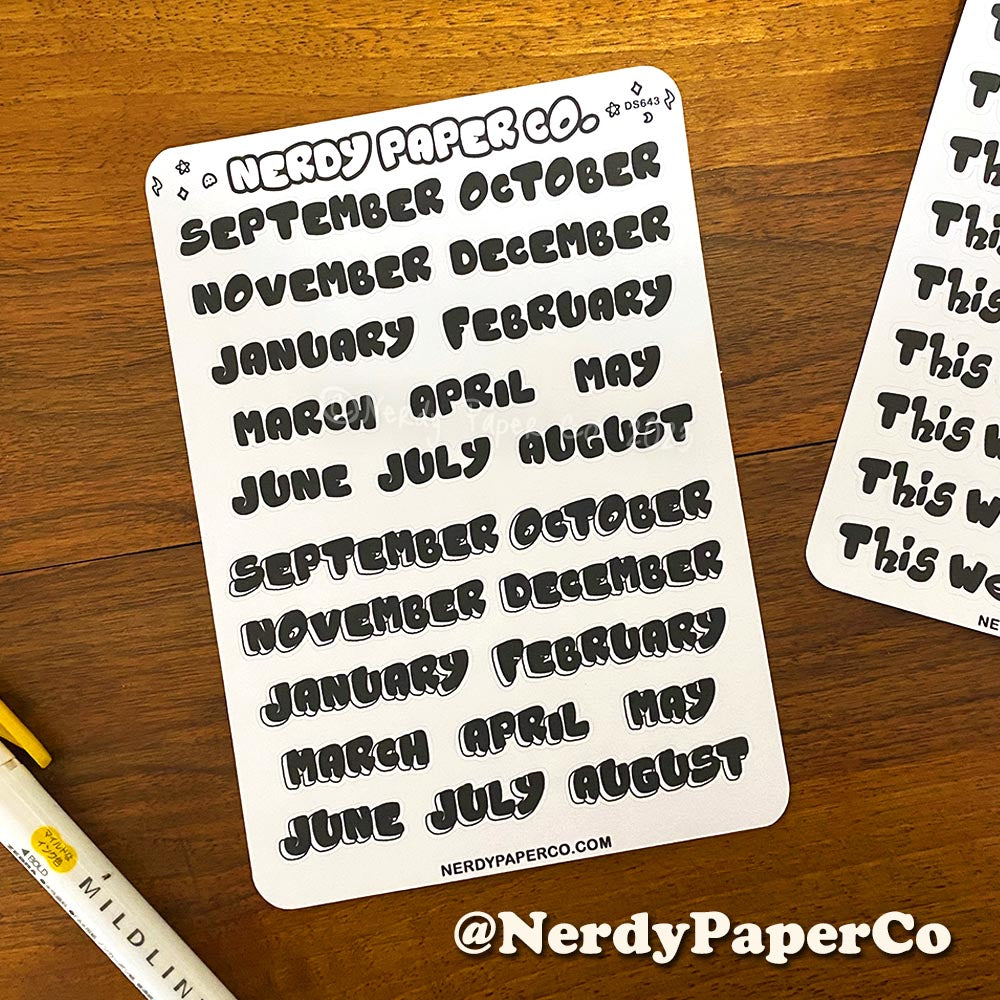 NERDY PAPER CO.
DS643
SEPTEMBER OCTOBER
NOVEMBER DECEMBER
JANUARY FEBRUARY
MARCH APRIL MAY
@Nerdy Paper Co
JUNE JULY AUGUST
SEPTEMBER OCTOBER
NOVEMBER DECEMBER
JANUARY FEBRUARY
MARCH APRIL MAY
JUNE JULY AUGUST
NERDYPAPERCO.COM
This
This
This
This
This
This w
This w
This we
NE
マイルドな
インク色
BOLD
MILDLIN
@NerdyPaperCo